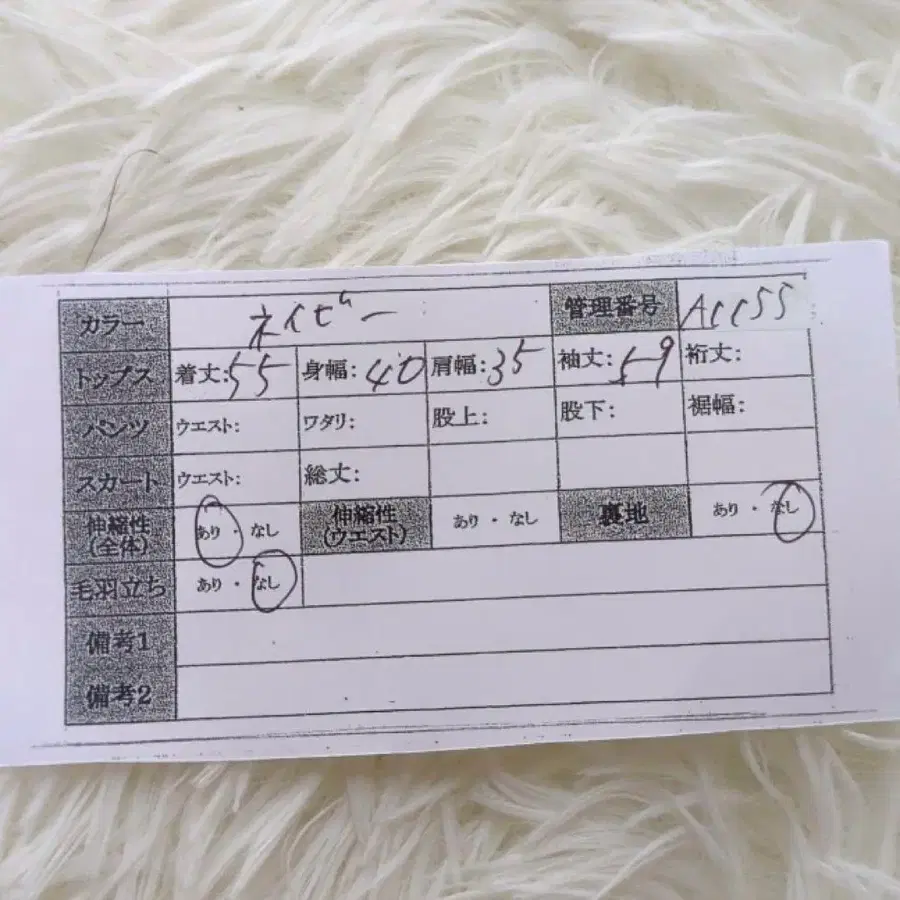 カラー ネイビー 管理番号 ACC55
トップス 着丈:55 身幅:40 肩幅:35 袖丈:59 裄丈:
パンツ ウエスト: ワタリ: 股上: 股下: 裾幅:
スカート ウエスト: 総丈:
伸縮性(全体) あり・なし 伸縮性(ウエスト) あり・なし 裏地 あり・なし
毛羽立ち あり・なし
備考1
備考2